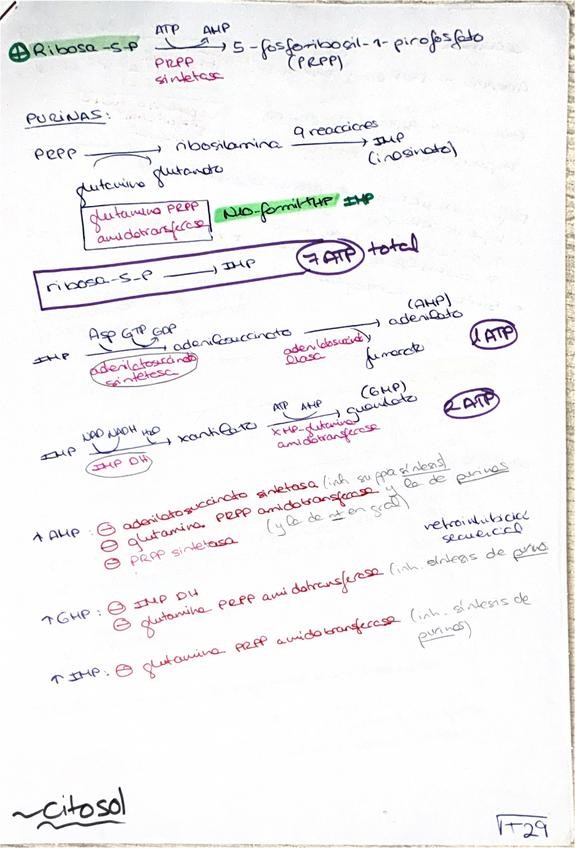 ⊕ Ribosa-5-P ATP AMP → 5-fosforibosil-1-pirofosfato
PRPP sintetasa (PRPP)
PURINAS:
PRPP → ribosilamina 9 reacciones → IMP
(inosinato)
glutamina glutamato
glutamina PRPP
amidotransferasa
N10-formil-THF IMP
ribosa-5-P → IMP 7 ATP total
IMP Asp GTP GDP → adenilosuccinato → adenilato (AMP) 1 ATP
adenilatosuccinato
sintetasa
adenilatosuccinato
liasa
fumarato
IMP NAD NADH H2O → xantilato ATP AMP → guanilato (GMP) 2 ATP
IMP DH
XMP-glutamina
amidotransferasa
↑ AMP: ⊖ adenilatosuccinato sintetasa (inh. su ppa síntesis)
⊖ glutamina PRPP amidotransferasa y la de purinas
⊖ PRPP sintetasa (y la de nt en gral)
retroinhibición
secuencial
↑ GMP: ⊖ IMP DH
⊖ glutamina PRPP amidotransferasa (inh. síntesis de purinas
↑ IMP: ⊖ glutamina PRPP amidotransferasa (inh. síntesis de
purinas)
~citosol
T29